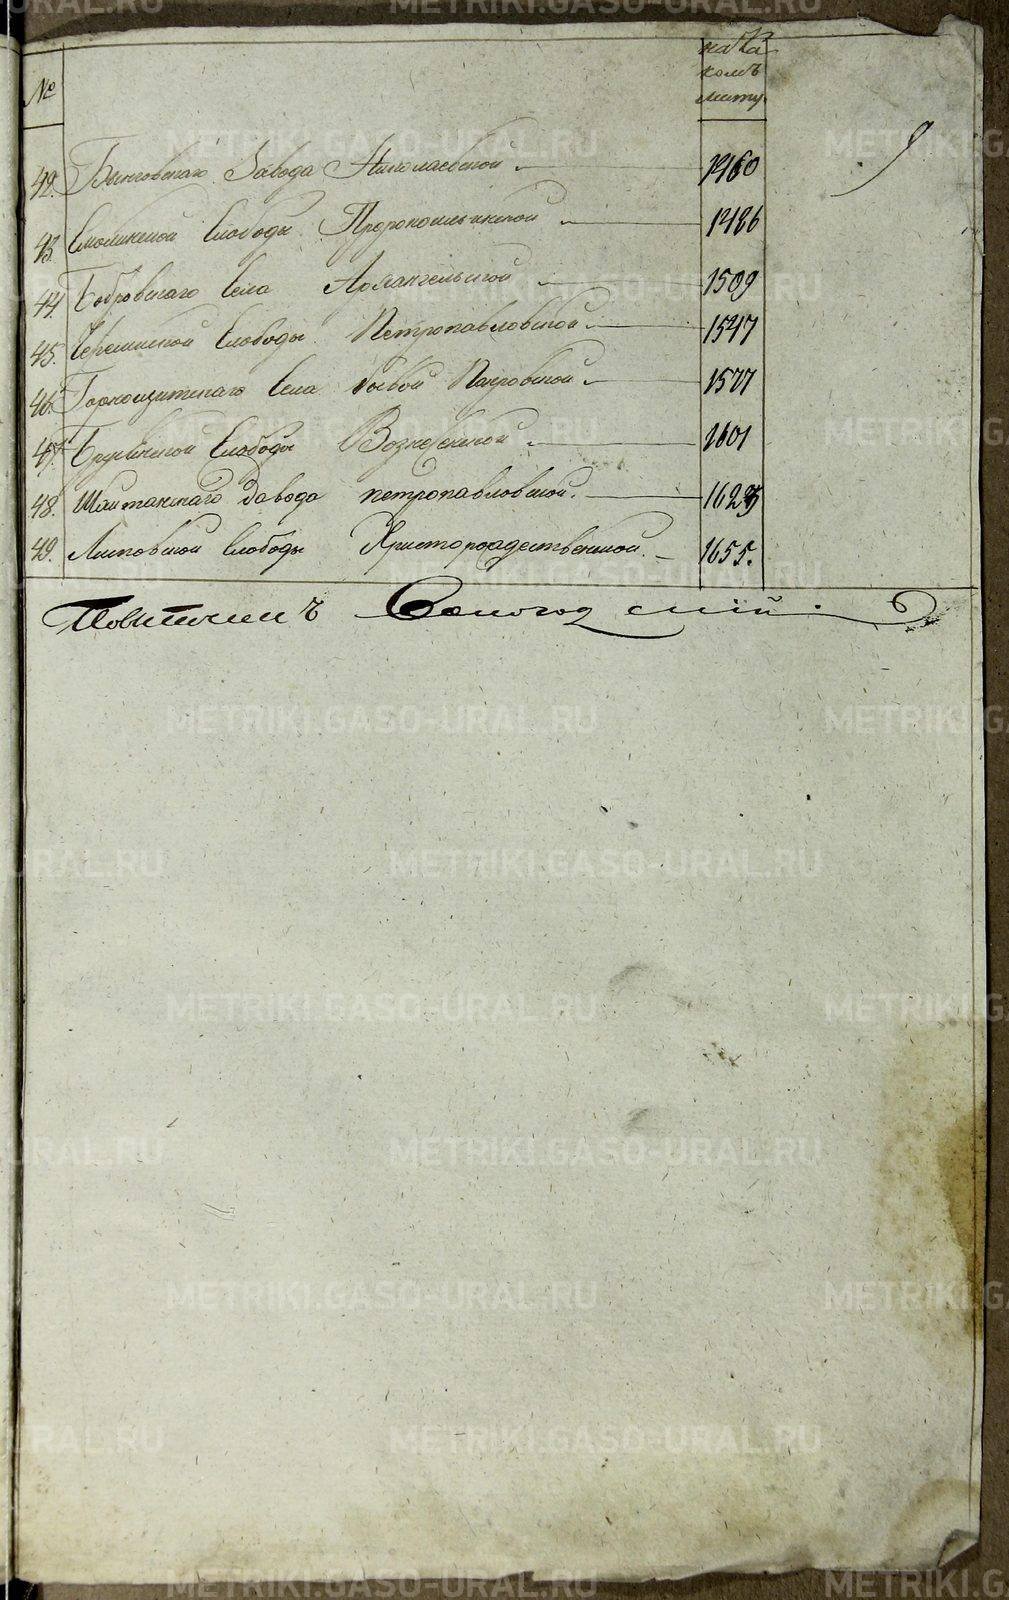 №
на ка
комъ
листу.
9
42. Бынговскаго Завода Николаевской 1460
43. Смолинской Слободы Пророкоильинской 1486
44. Бобровскаго Села Архангельской 1509
45. Черемиской Слободы Петропавловской 1547
46. Горнощитскаго Села Покровской 1577
47. Слободы Вознесенской 1601
48. Шайтанскаго Завода петропавловской. 1629
49. Слободы Христорождественской 1655.
METRIKI.GASO-URAL.RU